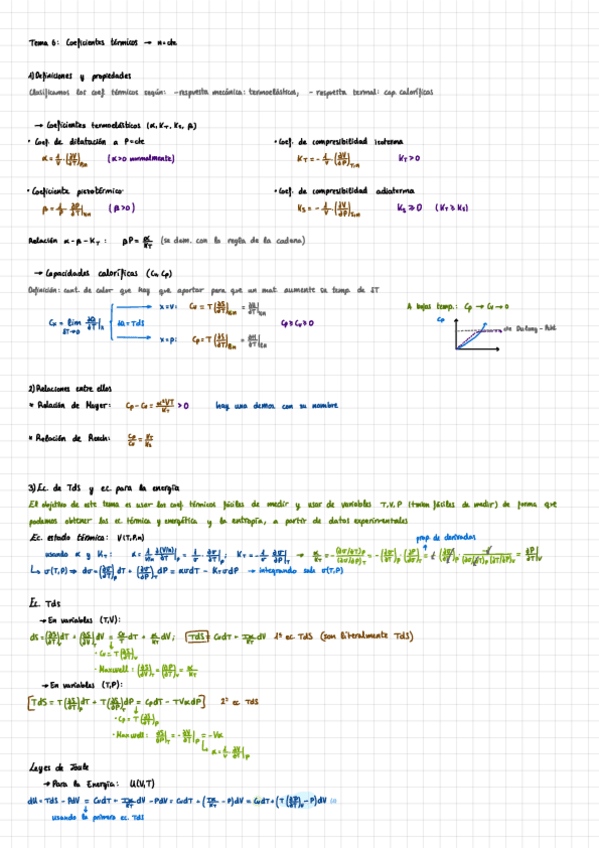 Tema 6: Coeficientes térmicos → n=cte
1) Definiciones y propiedades
Clasificamos los coef. térmicos según: -respuesta mecánica: termoelásticos, - respuesta termal: cap. caloríficas
→ Coeficientes termoelásticos (α, K_T, K_S, β)
• Coef. de dilatación a P=cte
• Coef. de compresibilidad isoterma
α = 1/V (∂V/∂T)_P,n (α>0 normalmente)
K_T = - 1/V (∂V/∂P)_T,n K_T > 0
• Coeficiente piezotérmico
• Coef. de compresibilidad adiaterma
β = 1/P (∂P/∂T)_V,n (β>0)
K_S = - 1/V (∂V/∂P)_S,n K_S ≥ 0 (K_T ≥ K_S)
Relación α-β-K_T: βP = α/K_T (se dem. con la regla de la cadena)
→ Capacidades caloríficas (C_V, C_P)
Definición: cant. de calor que hay que aportar para que un mat. aumente su temp. de δT
A bajas temp.: C_P → C_V → 0
x=V: C_V = T (∂S/∂T)_V,n = ∂U/∂T)_V,n
C_P
cte Dulong-Petit
C_x = lim δT→0 ∂Q/∂T)_x ∂Q=TdS
C_P ≥ C_V ≥ 0
x=P: C_P = T (∂S/∂T)_P,n
2) Relaciones entre ellos
* Relación de Mayer: C_P - C_V = α²VT/K_T > 0 hay una demos con su nombre
* Relación de Reech: C_P/C_V = K_T/K_S
3) Ec. de TdS y ec. para la energía
El objetivo de este tema es usar los coef. térmicos fáciles de medir y usar de variables T,V,P fáciles de medir) de forma que
podamos obtener las ec. térmica y energética y la entropía, a partir de datos experimentales
Ec. estado térmico: V(T,P,n)
prop. de derivadas
usando α y K_T:
↳ v(T,P) ⇒ dv = (∂v/∂T)_P dT + (∂v/∂P)_T dP = αvdT - K_T vdP → integrando sale v(T,P)
Ec. TdS
→ En variables (T,V):
dS = (∂S/∂T)_V dT + (∂S/∂V)_T dV = C_V/T dT + α/K_T dV; TdS = C_V dT + Tα/K_T dV 1ª ec. TdS (son literalmente TdS)
• C_V = T (∂S/∂T)_V
• Maxwell: (∂S/∂V)_T = (∂P/∂T)_V = α/K_T
→ En variables (T,P):
[TdS = T(∂S/∂T)_P dT + T(∂S/∂P)_T dP = C_P dT - TVαdP] 2ª ec TdS
• C_P = T (∂S/∂T)_P
• Maxwell: ∂S/∂P)_T = - ∂V/∂T)_P = -Vα
↳ α = 1/V ∂V/∂T)_P
Leyes de Joule
→ Para la Energía: U(V,T)
dU = TdS - PdV = C_V dT + Tα/K_T dV - PdV = C_V dT + (Tα/K_T - P)dV = C_V dT + (T (∂P/∂T)_V - P)dV
usando la primera ec. TdS